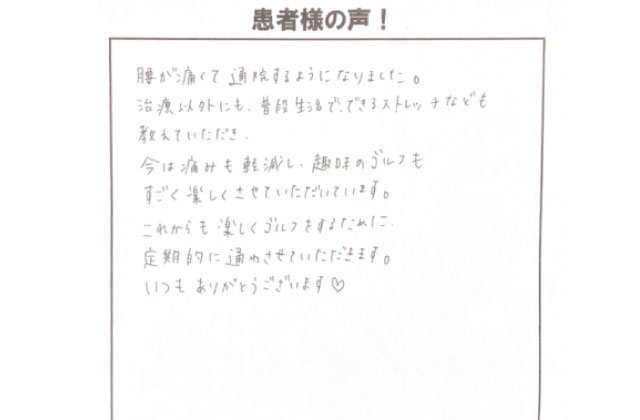 患者様の声！
腰が痛くて通院するようになりました。
治療以外にも、普段生活で、できるストレッチなども
教えていただき、
今は痛みも軽減し、趣味のゴルフも
すごく楽しくさせていただいています。
これからも楽しくゴルフをするために、
定期的に通わせていただきます。
いつもありがとうございます♡